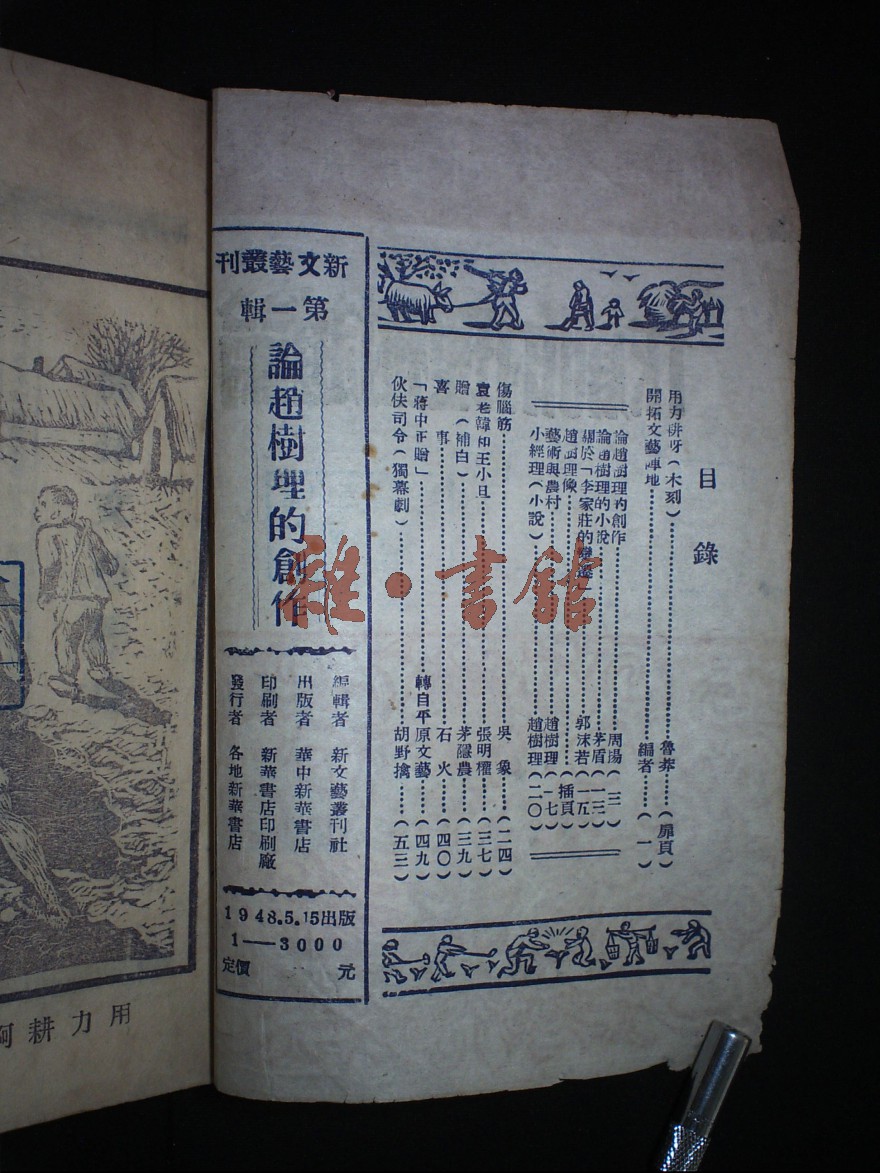 目錄
用力耕呀(木刻)……魯莽(扉頁)
開拓文藝陣地……編者(一)
論趙樹理的創作……周揚(三)
論趙樹理的小說……茅盾(一三)
關於「李家莊的變遷」……郭沫若(一五)
趙樹理像……(插頁)
藝術與農村……趙樹理(一七)
小經理(小說)……趙樹理(二〇)
傷腦筋……吳象(二四)
袁老韓和王小旦……張明權(三七)
贈(補白)……茅隱農(三九)
喜事……石火(四〇)
「蔣中正贈」……轉自平原文藝(四九)
伙伕司令(獨幕劇)……胡野擒(五三)
新文藝叢刊
第一輯
論趙樹理的創作
編輯者 新文藝叢刊社
出版者 華中新華書店
印刷者 新華書店印刷廠
發行者 各地新華書店
1948.5.15出版
1—3000
定價 元
雜·書館
用力耕啊